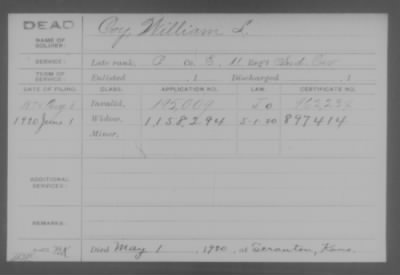 DEAD
NAME OF SOLDIER:
Coy William L.
SERVICE: Late rank, Co. 11 Reg't Ind. Cav
TERM OF SERVICE: Enlisted , 1 Discharged , 1
DATE OF FILING. CLASS. APPLICATION NO. LAW. CERTIFICATE NO.
Invalid.
1920 June 1 Widow. 1,158,294 5-1-20 897414
Minor.
ADDITIONAL SERVICES:
REMARKS:
Died May 1, 1920, at Scranton, Kans.